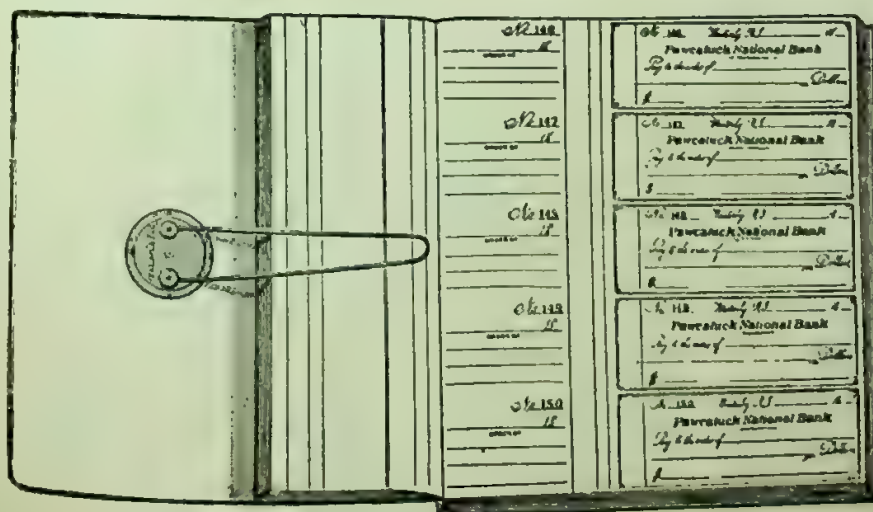 No. 146
18
ORDER OF
No. 147
18
ORDER OF
No. 148
18
ORDER OF
No. 149
18
ORDER OF
No. 150
18
ORDER OF
No. 146 Westerly R.I. 18
Pawcatuck National Bank
Pay to the order of
Dollars
$
No. 147 Westerly R.I. 18
Pawcatuck National Bank
Pay to the order of
Dollars
$
No. 148 Westerly R.I. 18
Pawcatuck National Bank
Pay to the order of
Dollars
$
No. 149 Westerly R.I. 18
Pawcatuck National Bank
Pay to the order of
Dollars
$
No. 150 Westerly R.I. 18
Pawcatuck National Bank
Pay to the order of
Dollars
$